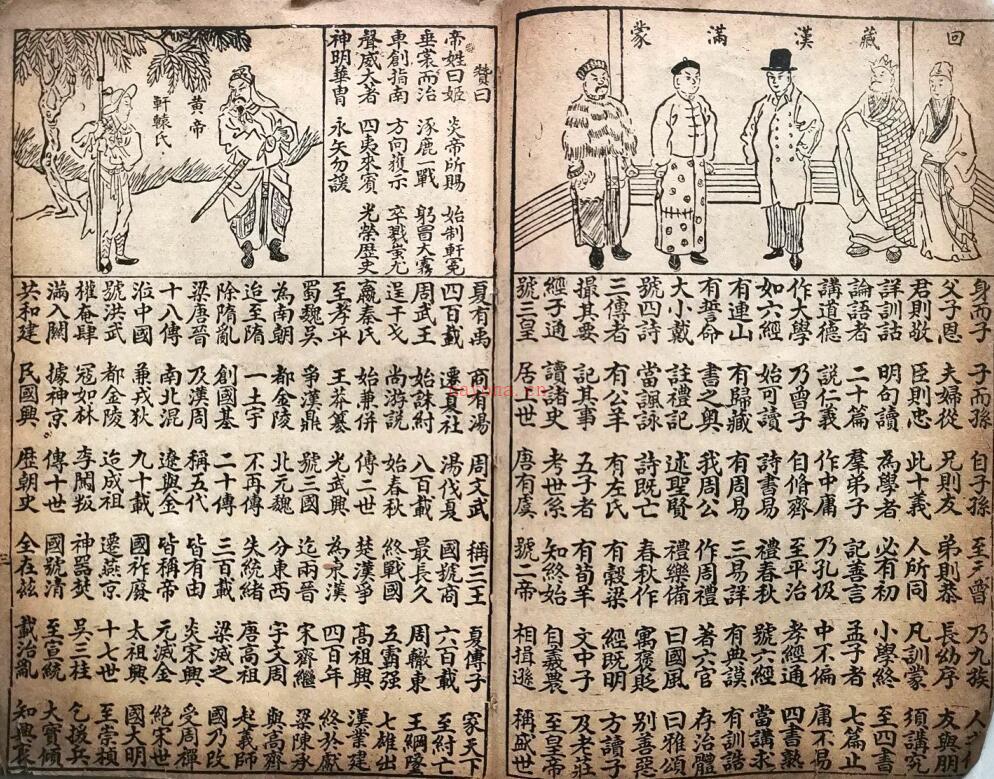 回藏漢滿蒙
身而子 子而孫 自子孫 至玄曾 乃九族 人之
父子恩 夫婦從 兄則友 弟則恭 長幼序 友與朋
君則敬 臣則忠 此十義 人所同 凡訓蒙 須講究
詳訓詁 明句讀 為學者 必有初 小學終 至四書
論語者 二十篇 羣弟子 記善言 孟子者 七篇止
講道德 說仁義 作中庸 乃孔伋 中不偏 庸不易
作大學 乃曾子 自脩齊 至平治 孝經通 四書熟
如六經 始可讀 詩書易 禮春秋 號六經 當講求
有連山 有歸藏 有周易 三易詳 有典謨 有訓誥
有誓命 書之奧 我周公 作周禮 著六官 存治體
大小戴 註禮記 述聖賢 禮樂備 曰國風 曰雅頌
號四詩 當諷詠 詩既亡 春秋作 寓褒貶 別善惡
三傳者 有公羊 有左氏 有穀梁 經既明 方讀子
撮其要 記其事 五子者 有荀羊 文中子 及老莊
經子通 讀諸史 考世系 知終始 自羲農 至皇帝
號三皇 居上世 唐有虞 號二帝 相揖遜 稱盛世
贊曰
帝姓曰姬 炎帝所賜 始制軒冕
垂裳而治 涿鹿一戰 躬冒大霧
車創指南 方向獲示 卒戮蚩尤
聲威大著 四夷來賓 光榮歷史
神明華胄 永矢勿諼
黃帝
軒轅氏
夏有禹 商有湯 周文武 稱三王 夏傳子 家天下
四百載 遷夏社 湯伐夏 國號商 六百載 至紂亡
周武王 始誅紂 八百載 最長久 周轍東 王綱墜
逞干戈 尚游說 始春秋 終戰國 五霸强 七雄出
嬴秦氏 始兼併 傳二世 楚漢爭 高祖興 漢業建
至孝平 王莽篡 光武興 為東漢 四百年 終於獻
蜀魏吳 爭漢鼎 號三國 迄兩晉 宋齊繼 梁陳承
為南朝 都金陵 北元魏 分東西 宇文周 與高齊
迨至隋 一土宇 不再傳 失統緒 唐高祖 起義師
除隋亂 創國基 二十傳 三百載 梁滅之 國乃改
梁唐晉 及漢周 稱五代 皆有由 炎宋興 受周禪
十八傳 南北混 遼與金 皆稱帝 元滅金 絕宋世
涖中國 兼戎狄 九十載 國祚廢 太祖興 國大明
號洪武 都金陵 迨成祖 遷燕京 十七世 至崇禎
權奄肆 冦如林 李闖叛 神器焚 吳三桂 乞援兵
滿入關 據神京 傳十世 國號清 至宣統 大寶傾
共和建 民國興 歷朝史 全在茲 載治亂 知興衰
三